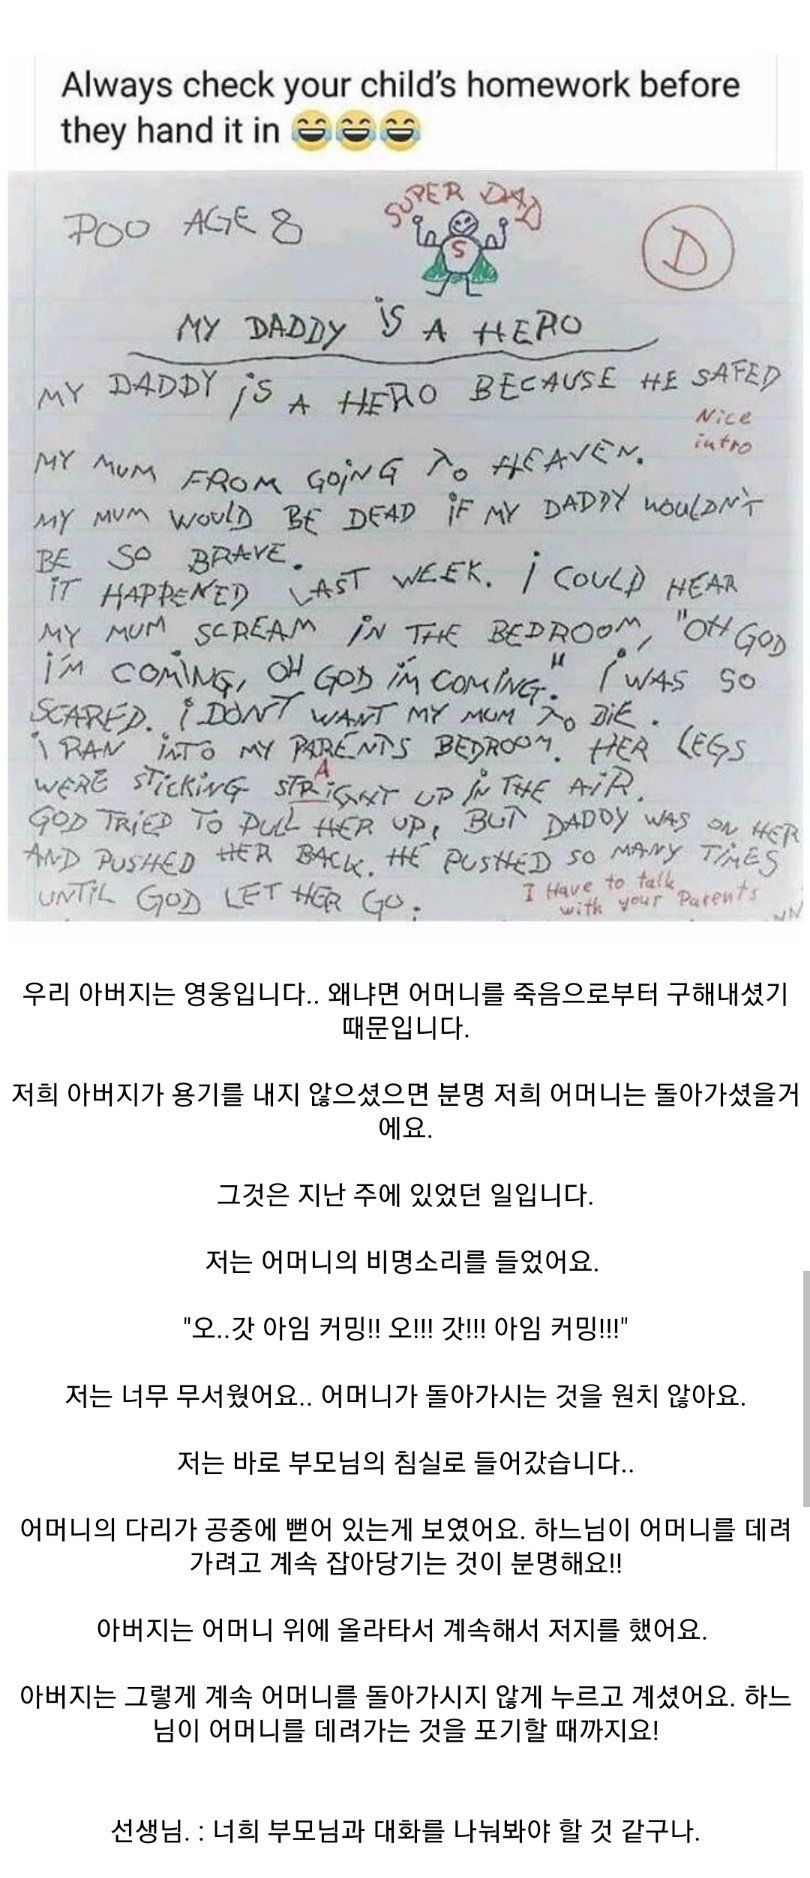 Always check your child's homework before
they hand it in 😂😂😂
POO AGE 8
SUPER DAD
S
D
MY DADDY iS A HERO
MY DADDY iS A HERO BECAUSE HE SAFED
Nice
intro
MY MUM FROM GOiNG TO HEAVEN.
MY MUM WOULD BE DEAD iF MY DADDY WOULDN'T
BE SO BRAVE.
iT HAPPENED LAST WEEK. i COULD HEAR
MY MUM SCREAM iN THE BEDROOM, "OH GOD
i'M COMiNG, OH GOD i'M COMiNG." i WAS SO
SCARED. i DON'T WANT MY MUM TO DiE.
i RAN iNTO MY PARENTS BEDROOM. HER LEGS
A
WERE STiCKiNG STRiGHT UP iN THE AiR.
GOD TRiED TO PULL HER UP, BUT DADDY WAS ON HER
AND PUSHED HER BACK. HE PUSHED SO MANY TiMES
UNTiL GOD LET HER GO.
I Have to talk
with your Parents
우리 아버지는 영웅입니다.. 왜냐면 어머니를 죽음으로부터 구해내셨기
때문입니다.
저희 아버지가 용기를 내지 않으셨으면 분명 저희 어머니는 돌아가셨을거
에요.
그것은 지난 주에 있었던 일입니다.
저는 어머니의 비명소리를 들었어요.
"오..갓 아임 커밍!! 오!!! 갓!!! 아임 커밍!!!"
저는 너무 무서웠어요.. 어머니가 돌아가시는 것을 원치 않아요.
저는 바로 부모님의 침실로 들어갔습니다..
어머니의 다리가 공중에 뻗어 있는게 보였어요. 하느님이 어머니를 데려
가려고 계속 잡아당기는 것이 분명해요!!
아버지는 어머니 위에 올라타서 계속해서 저지를 했어요.
아버지는 그렇게 계속 어머니를 돌아가시지 않게 누르고 계셨어요. 하느
님이 어머니를 데려가는 것을 포기할 때까지요!
선생님. : 너희 부모님과 대화를 나눠봐야 할 것 같구나.